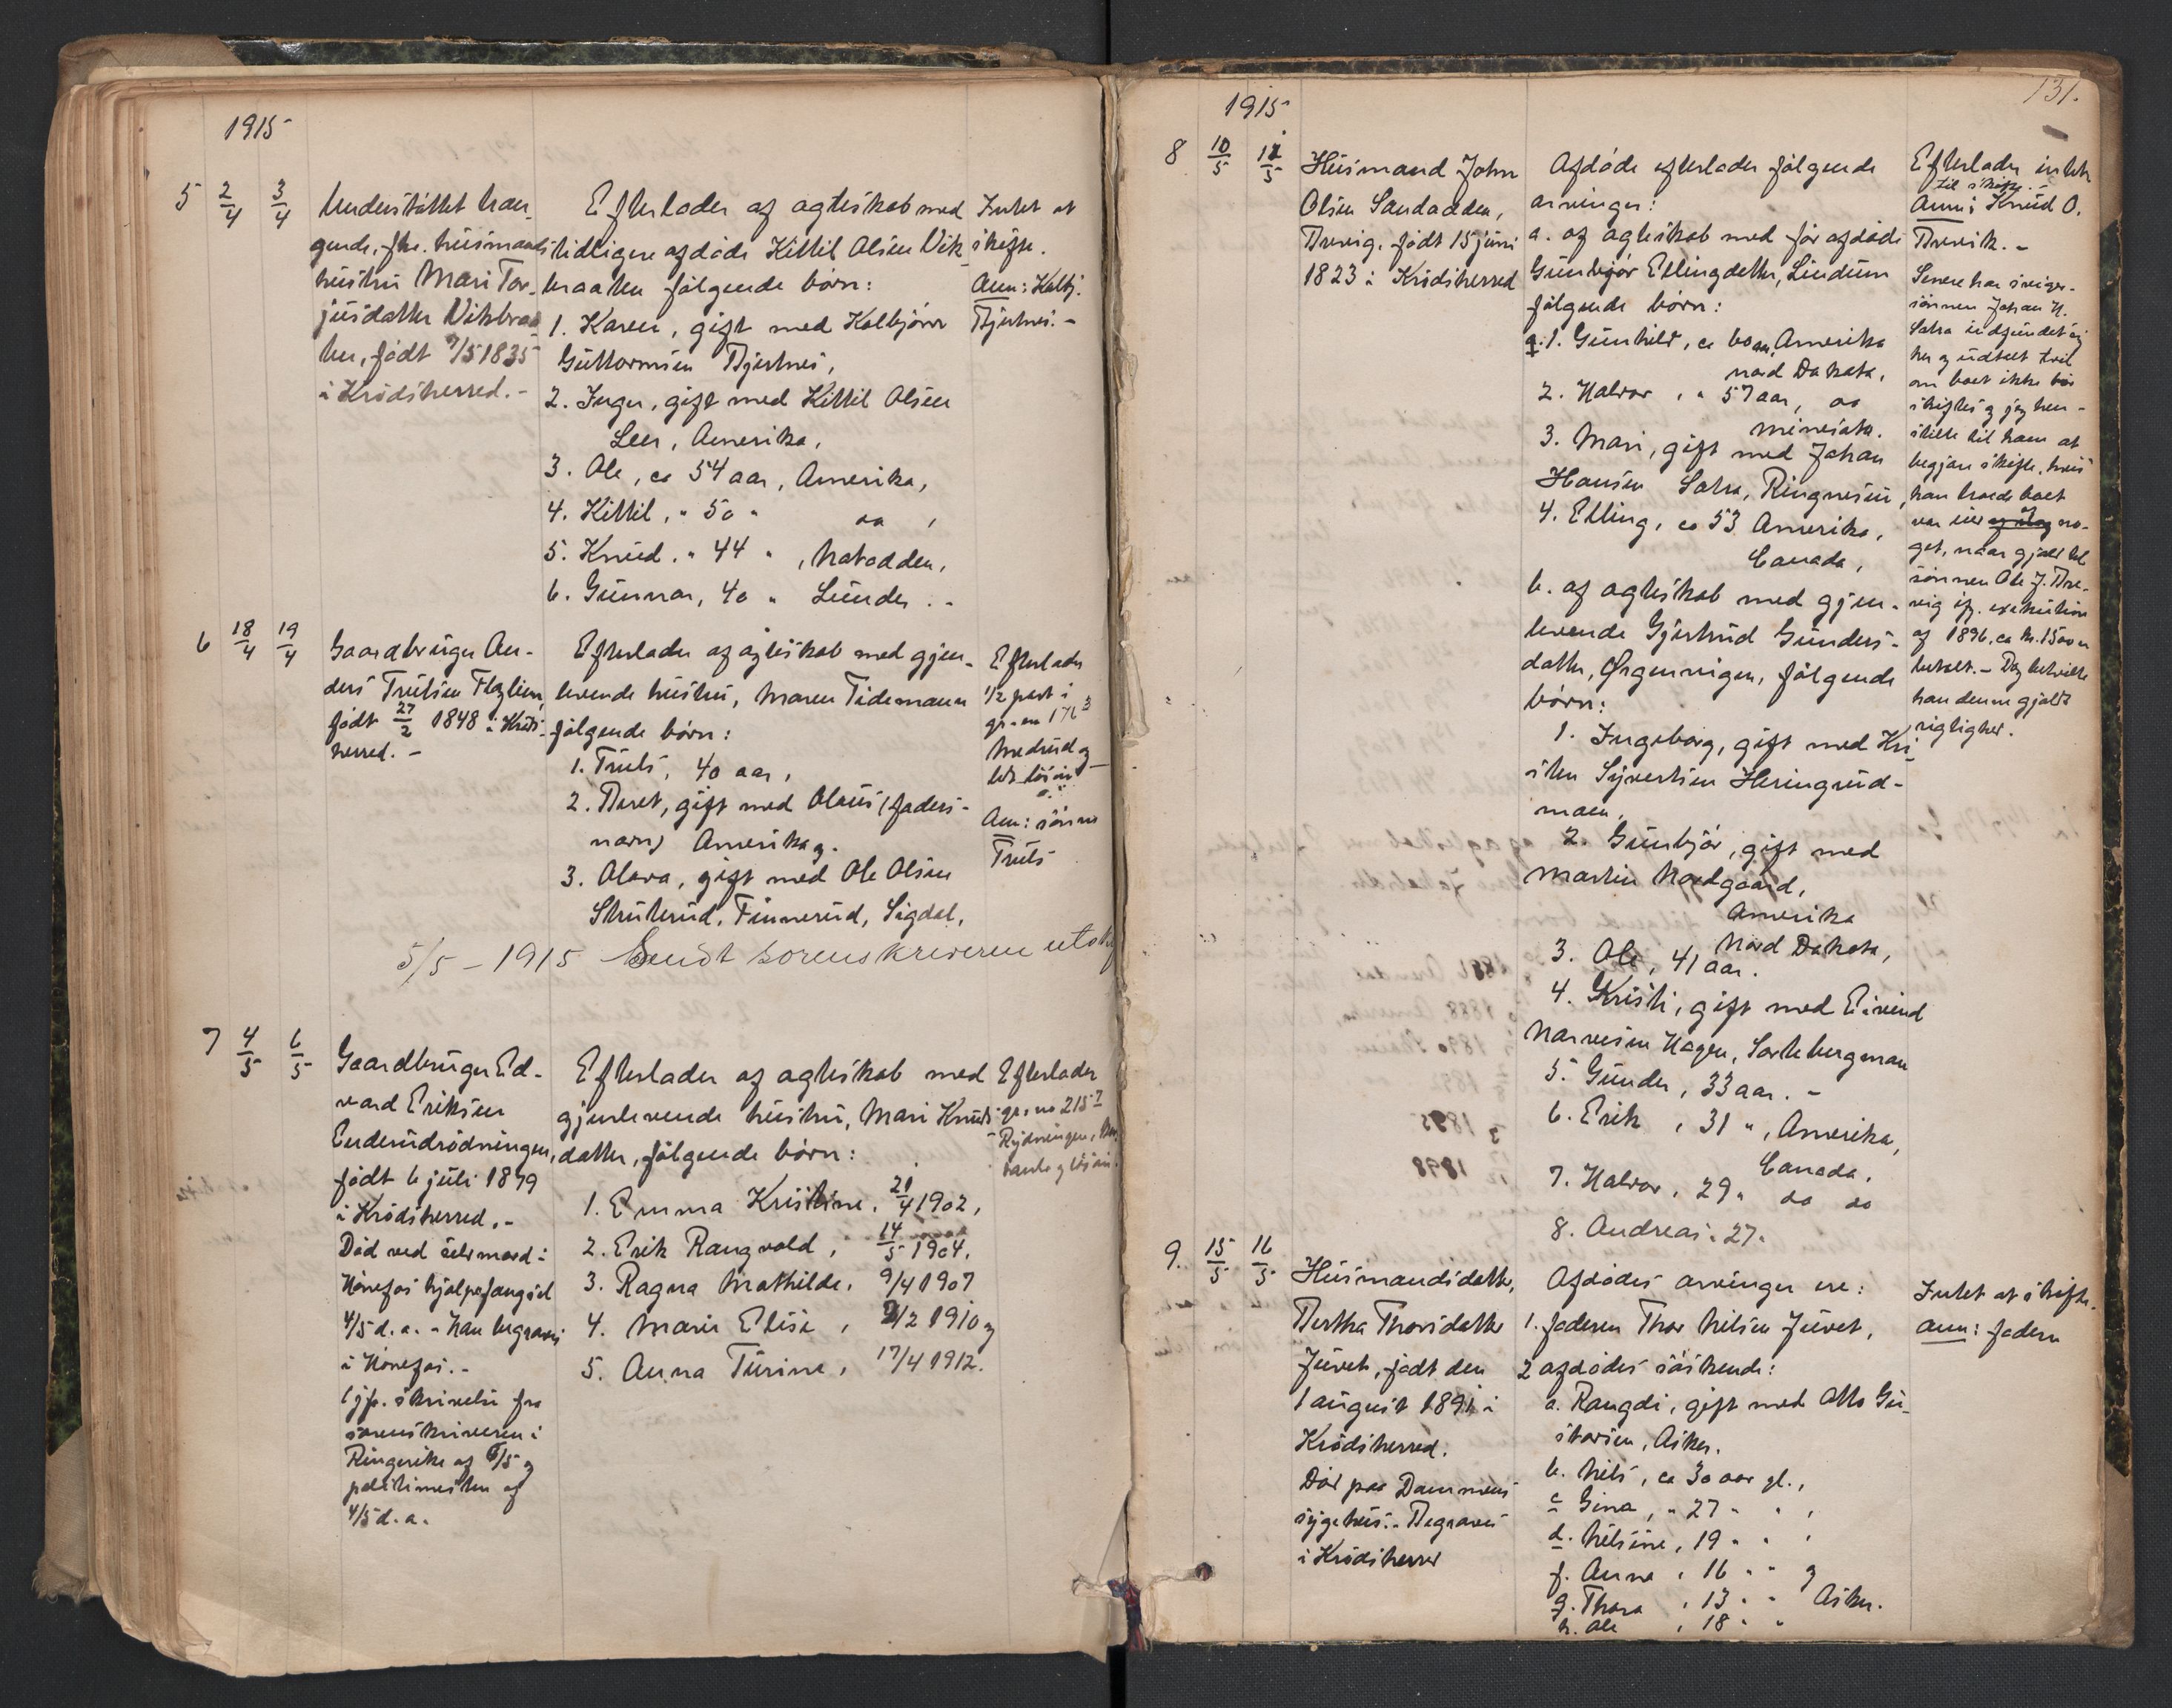 1915
5 2/4 3/4
Understøttet træn-
gende, fhv. husmands
hustru Mari Tor-
jusdatter Vikbraa-
ten, født 9/5 1835
i Krødsherred. -
Efterlader af ægteskab med
tidligere afdøde Kittil Olsen Vik-
braaten følgende børn:
1. Karen, gift med Kolbjørn
Guttormsen Bjertnes,
2. Inger, gift med Kittil Olsen
Leer, Amerika,
3. Ole, ca 54 aar, Amerika,
4. Kittil, " 50 " do ,
5. Knud, " 44 " , Notodden,
6. Gunnar, 40 " Lunder. -
Intet at
skifte.
Anm: Kolbj.
Bjertnes. -
6 18/4 19/4
Gaardbruger An-
ders Trulsen Flaglien,
født 27/2 1848 i Krøds-
herred. -
Efterlader af ægteskab med gjen-
levende hustru, Maren Tidemann
følgende børn:
1. Truls, 40 aar,
2. Beret, gift med Olaus (faders-
navn) Amerika og
3. Olava, gift med Ole Olsen
Skuterud, Finnerud, Sigdal,
Efterlader
1/2 part i
gr. no 176 3
Medrud og
lidt løsøre
Anm: sønnen
Truls
5/5 - 1915 Sendt sorenskriveren utskr
7 4/5 6/5
Gaardbruger Ed-
vard Eriksen
Enderudrødningen,
født 6 juli 1879
i Krødsherred. -
Død ved selvmord i
Hønefos hjælpefængsel
4/5 d. a. - Han begraves
i Hønefos. -
(jfr. skrivelse fra
sorenskriveren i
Ringerike af 5/5 og
politimesteren af
4/5 d. a.
Efterlader af ægteskab med
gjenlevende hustru, Mari Knuds-
datter, følgende børn:
1. Emma Kristine, 21/4 1902,
2. Erik Rangvald, 14/5 1904,
3. Ragna Mathilde, 9/4 1907
4. Marie Elise, 2/2 1910 og
5. Anna Turine, 17/4 1912.
Efterlader
gr. no 215 7
Rydningen,
og løsøre.
131.
1915
8 10/5 12/5
Husmand John
Olsen Sandodden,
Brevig, født 15 juni
1823 i Krødsherred
Afdøde efterlader følgende
arvinger:
a. af ægteskab med før afdøde
Gunbjør Ellingdatter, Lindum
følgende børn:
a. 1. Gunhild, ca 60 aar, Amerika
nord Dakota,
2. Halvor , " 57 aar, do
Minesota.
3. Mari, gift med Johan
Hansen Satra, Ringnesøen,
4. Elling, ca 53 Amerika,
Canada,
b. af ægteskab med gjen-
levende Gjertrud Gunders-
datter, Ørgenvigen, følgende
børn:
1. Ingeborg, gift med Kri-
sten Syvertsen Heringrud-
moen,
2. Gunbjør, gift med
Martin Nordgaard,
Amerika
Nord Dakota,
3. Ole, 41 aar.
4. Kristi, gift med Eivind
Narvesen Hagen, Sorteberg
5. Gunder, 33 aar. -
6. Erik , 31 ", Amerika,
Canada.
7. Halvor, 29 " do do
8. Andreas. 27.
Efterlader intet
til skifte. -
Anm: Knud O.
Brevik. -
Senere har sviger-
sønnen Johan H.
Satra indfundet sig
her og udtalt tvil
om boet ikke bør
skiftes og jeg hen-
stilte til ham at
begjære skifte, hvis
han troede boet
var eier af no-
get, naar gjæld til
sønnen Ole J. Bre-
vig ifg. exekution
af 1896, ca kr. 1500 er
betalt. - Dog betvilte
han denne gjælds
rigtighed.
9. 15/5 16/5
Husmandsdatter,
Bertha Thorsdatter
Juvet, født den
1 august 1891 i
Krødsherred.
Død paa Drammens
sygehus. - Begraves
i Krødsherred
Afdødes arvinger ere:
1. faderen Thor Nilsen Juvet,
2 afdødes søskende:
a. Rangdi, gift med Otto Gu-
stavsen, Asker.
b. Nils, ca 30 aar gl.,
c Gina, " 27 " " ,
d. Nilsine, 19 " " ,
f. Anna , 16 " " og
g. Thora , 13 " " Asker.
h. Ole , 18 " "
Intet at skifte.
Anm: faderen